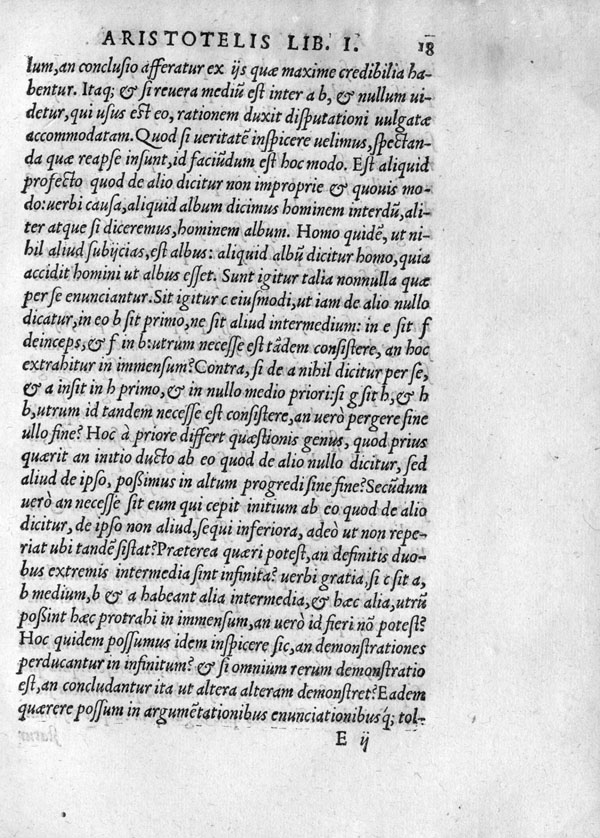 ARISTOTELIS LIB. I. 18
lum, an conclusio afferatur ex ijs quæ maxime credibilia ha-
bentur. Itaq; & si revera mediũ est inter a b, & nullum ui-
detur, qui usus est eo, rationem duxit disputationi uulgatæ
accommodatam. Quod si ueritatẽ inspicere uelimus, spectan-
da quæ reapse insunt, id faciũdum est hoc modo. Est aliquid
profecto quod de alio dicitur non improprie & quouis mo-
do: uerbi causa, aliquid album dicimus hominem interdũ, ali-
ter atque si diceremus, hominem album. Homo quidẽ, ut ni-
hil aliud subijcias, est albus: aliquid albũ dicitur homo, quia
accidit homini ut albus esset. Sunt igitur talia nonnulla quæ
per se enunciantur. Sit igitur c eiusmodi, ut iam de alio nullo
dicatur, in eo b sit primo, ne sit aliud intermedium: in e sit f
deinceps, & f in b: utrum necesse est tãdem consistere, an hoc
extrahitur in immensum? Contra, si de a nihil dicitur per se,
& a insit in h primo, & in nullo medio priori: si g sit h, & h
b, utrum id tandem necesse est consistere, an uerò pergere sine
ullo fine? Hoc à priore differt quæstionis genus, quod prius
quærit an initio ducto ab eo quod de alio nullo dicitur, sed
aliud de ipso, poßimus in altum progredi sine fine? Secũdum
uerò an necesse sit eum qui cepit initium ab eo quod de alio
dicitur, de ipso non aliud, sequi inferiora, adeò ut non repe-
riat ubi tandẽ sistat? Præterea quæri potest, an definitis duo-
bus extremis intermedia sint infinita? uerbi gratia, si c sit a,
b medium, b & a habeant alia intermedia, & hæc alia, utrũ
poßint hæc protrahi in immensum, an uerò id fieri nõ potest?
Hoc quidem possumus idem inspicere sic, an demonstrationes
perducantur in infinitum? & si omnium rerum demonstratio
est, an concludantur ita ut altera alteram demonstret? Eadem
quærere possum in argumẽtationibus enunciationibusq́; tol-
E ij